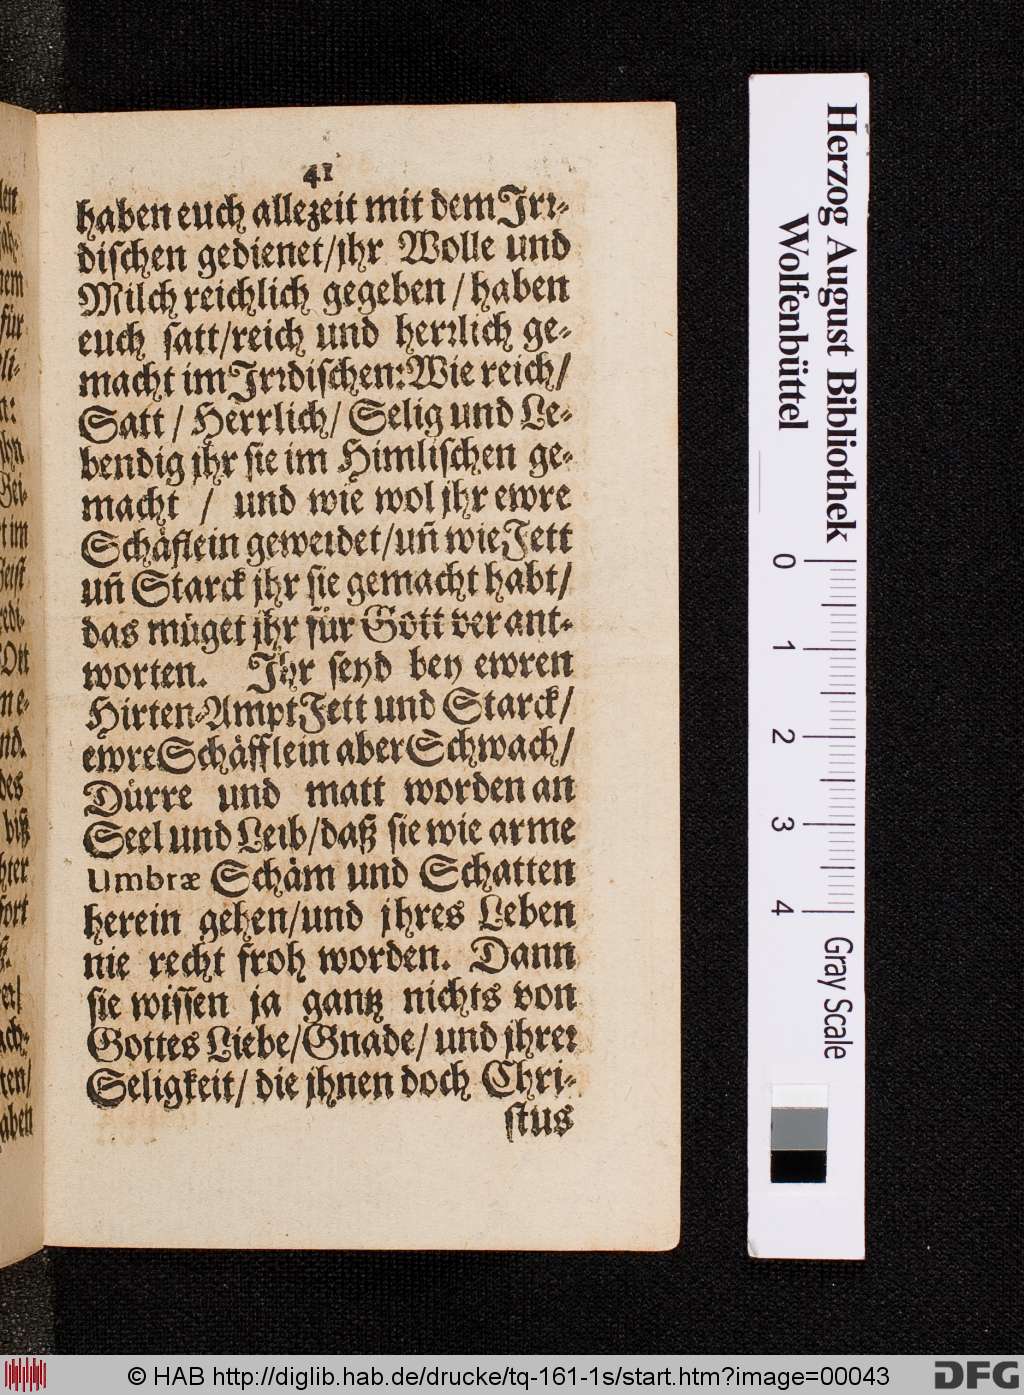 41
haben euch allezeit mit dem Jrr⸗
dischen gedienet/jhr Wolle und
Milch reichlich gegeben / haben
euch satt/reich und herrlich ge⸗
macht im Jrrdischen: Wie reich/
Satt / Herrlich/ Selig und Le⸗
bendig jhr sie im Himlischen ge⸗
macht / und wie wol jhr ewre
Schäflein geweidet/uñ wie Fett
uñ Starck jhr sie gemacht habt/
das müget jhr für Gott verant⸗
worten. Jhr seyd bey ewren
Hirten⸗Ampt Fett und Starck/
ewre Schäfflein aber Schwach/
Dürre und matt worden an
Seel und Leib/daß sie wie arme
Umbræ Schäm und Schatten
herein gehen/und jhres Leben
nie recht froh worden. Dann
sie wissen ja gantz nichts von
Gottes Liebe/Gnade/ und jhrer
Seligkeit/ die jhnen doch Chri⸗
stus
Herzog August Bibliothek
Wolfenbüttel
0
1
2
3
4
Gray Scale
© HAB http://diglib.hab.de/drucke/tq-161-1s/start.htm?image=00043
DFG